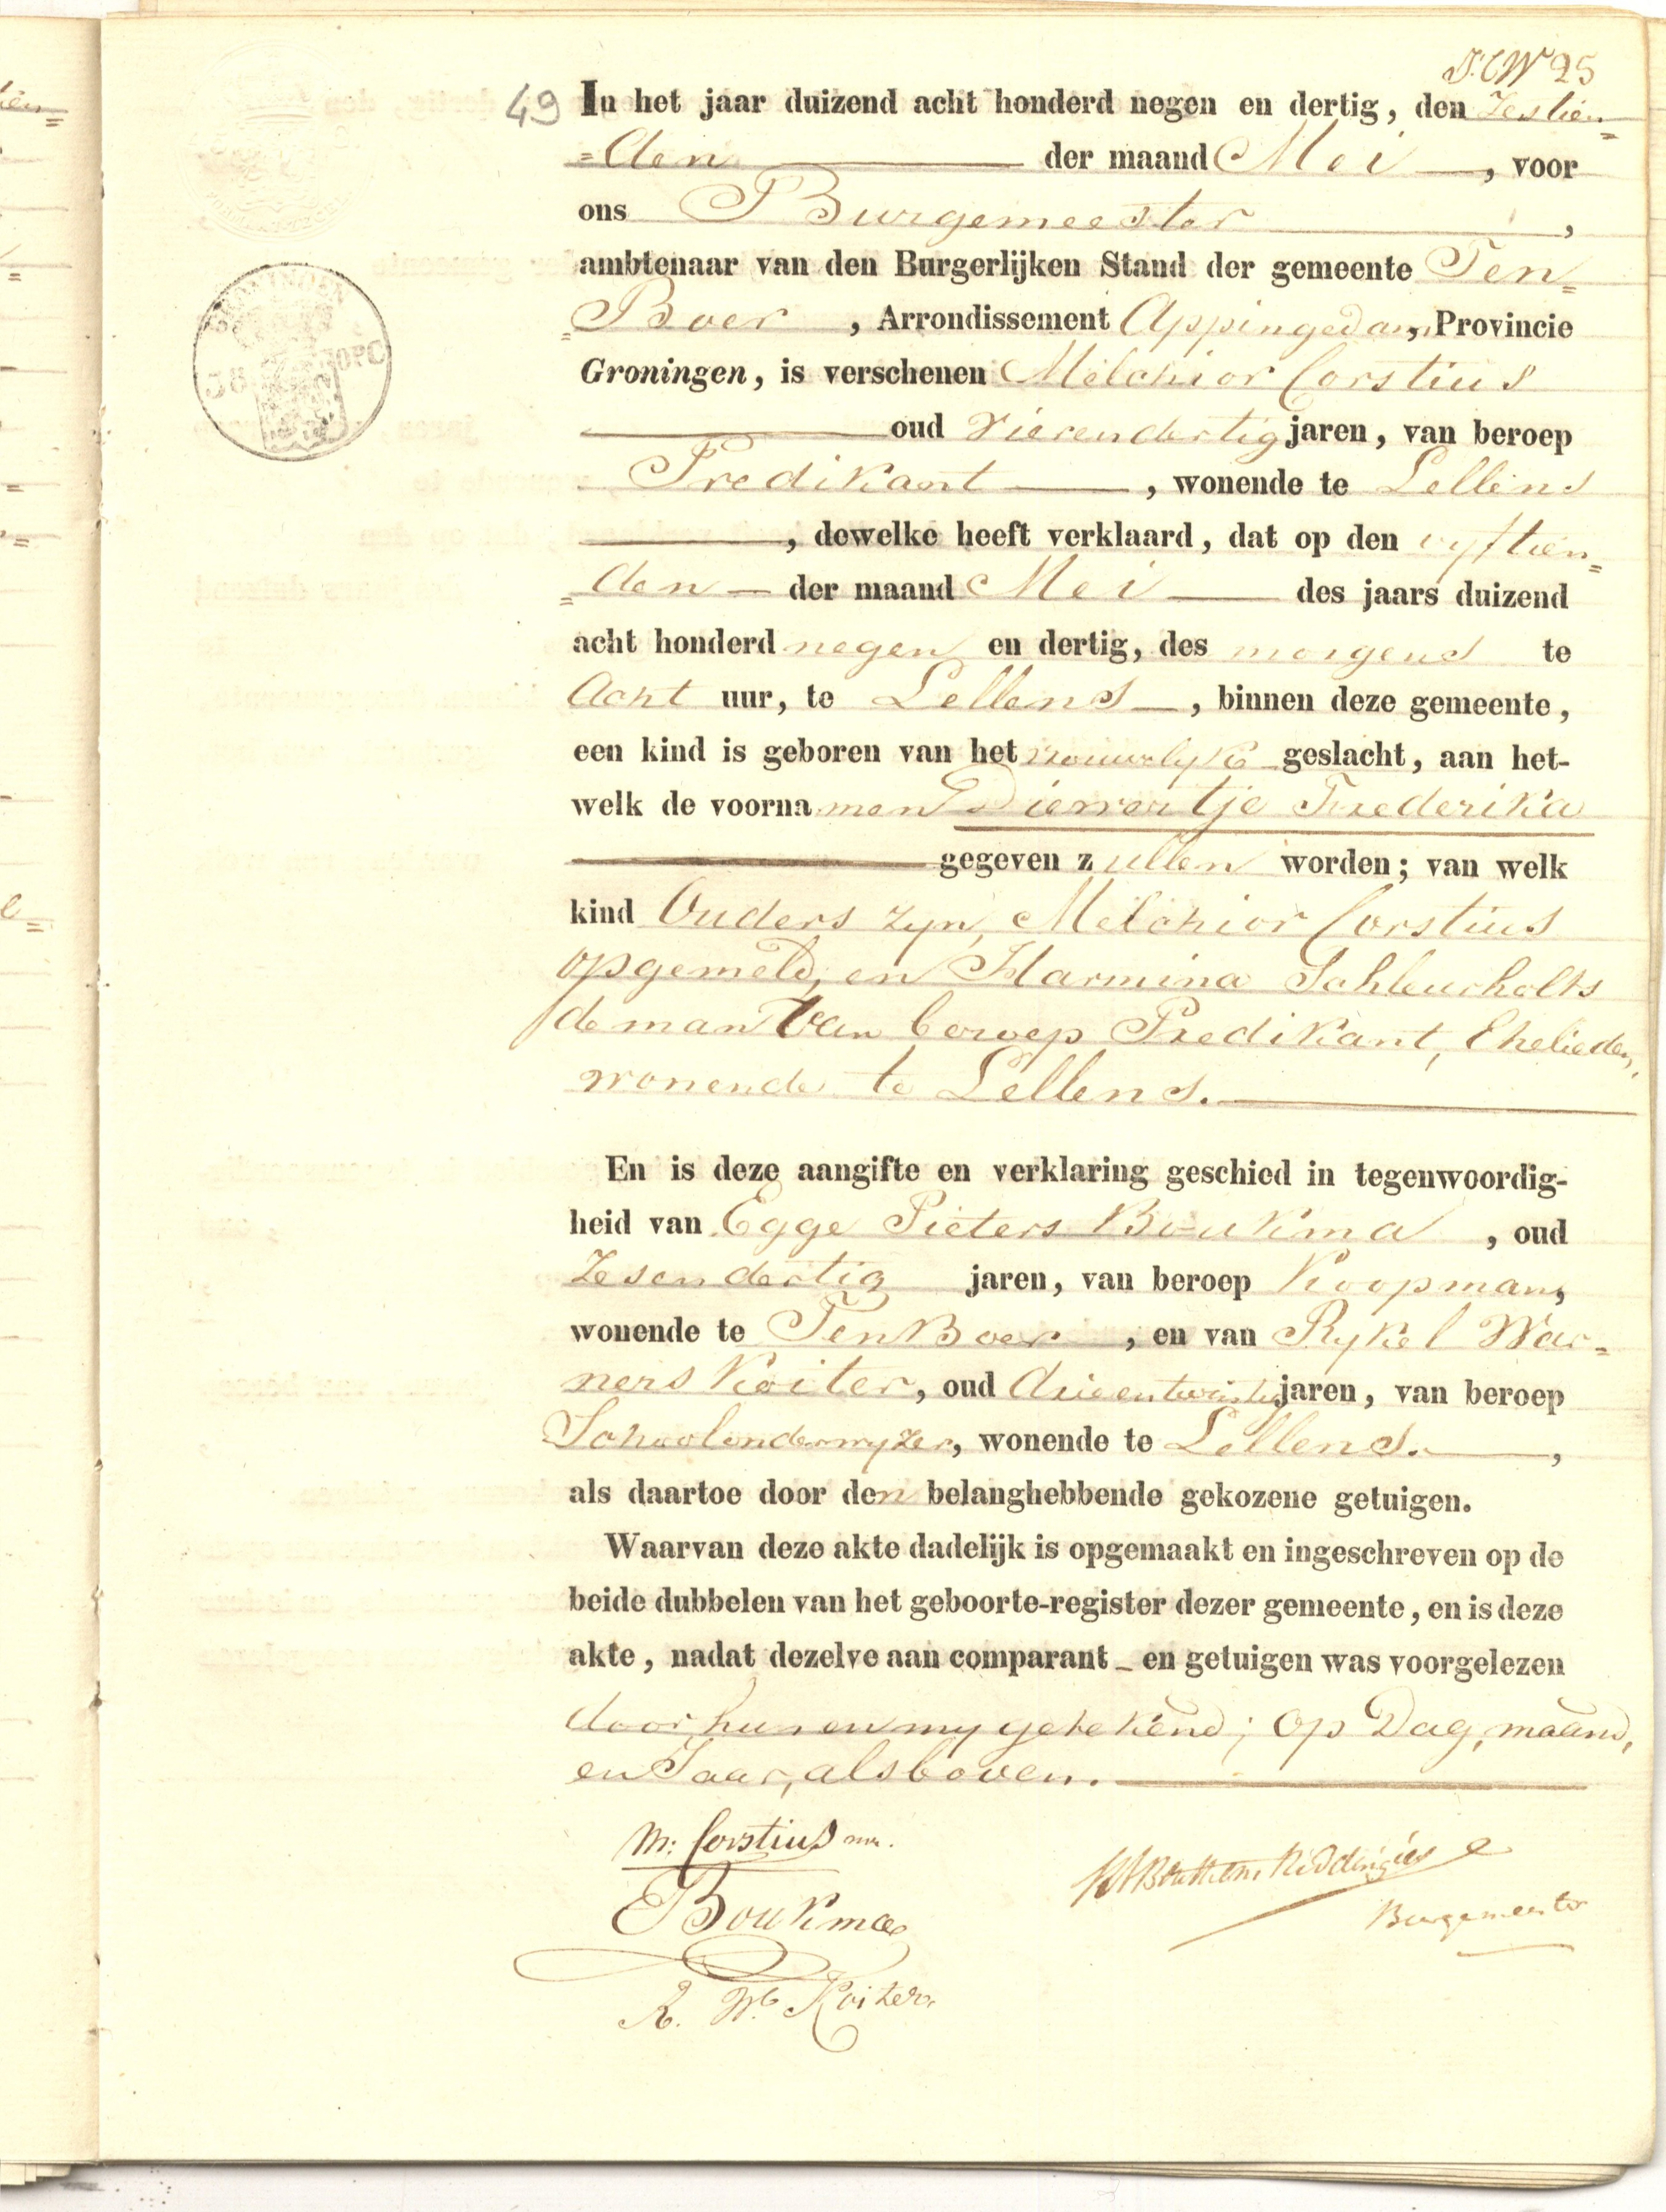 25
49 In het jaar duizend acht honderd negen en dertig, den Zestien=
=den der maand Mei, voor
ons Burgemeester,
ambtenaar van den Burgerlijken Stand der gemeente Ten=
=Boer, Arrondissement Appingedam, Provincie
Groningen, is verschenen Melchior Corstius
oud vierendertig jaren, van beroep
Predikant, wonende te Lellens
, dewelke heeft verklaard, dat op den vyftien=
=den der maand Mei des jaars duizend
acht honderd negen en dertig, des morgens te
Acht uur, te Lellens, binnen deze gemeente,
een kind is geboren van het vrouwelyke geslacht, aan het-
welk de voornamen Diewertje Frederika
gegeven zullen worden; van welk
kind Ouders zyn, Melchior Corstius
opgemeld, en Harmina Schleurholts
de man van beroep Predikant, Ehelieden,
wonende te Lellens.
En is deze aangifte en verklaring geschied in tegenwoordig-
heid van Egge Pieters Boukma, oud
Zesendertig jaren, van beroep Koopman,
wonende te Ten Boer, en van Rykel War=
ners Koiter, oud drieentwintig jaren, van beroep
Schoolonderwyzer, wonende te Lellens.,
als daartoe door den belanghebbende gekozene getuigen.
Waarvan deze akte dadelijk is opgemaakt en ingeschreven op de
beide dubbelen van het geboorte-register dezer gemeente, en is deze
akte, nadat dezelve aan comparant _ en getuigen was voorgelezen
door hun en my getekend; Op Dag, maand,
en Jaar, als boven.
M: Corstius
Boukma
R. W. Koiter
Riddingius
Burgemeester